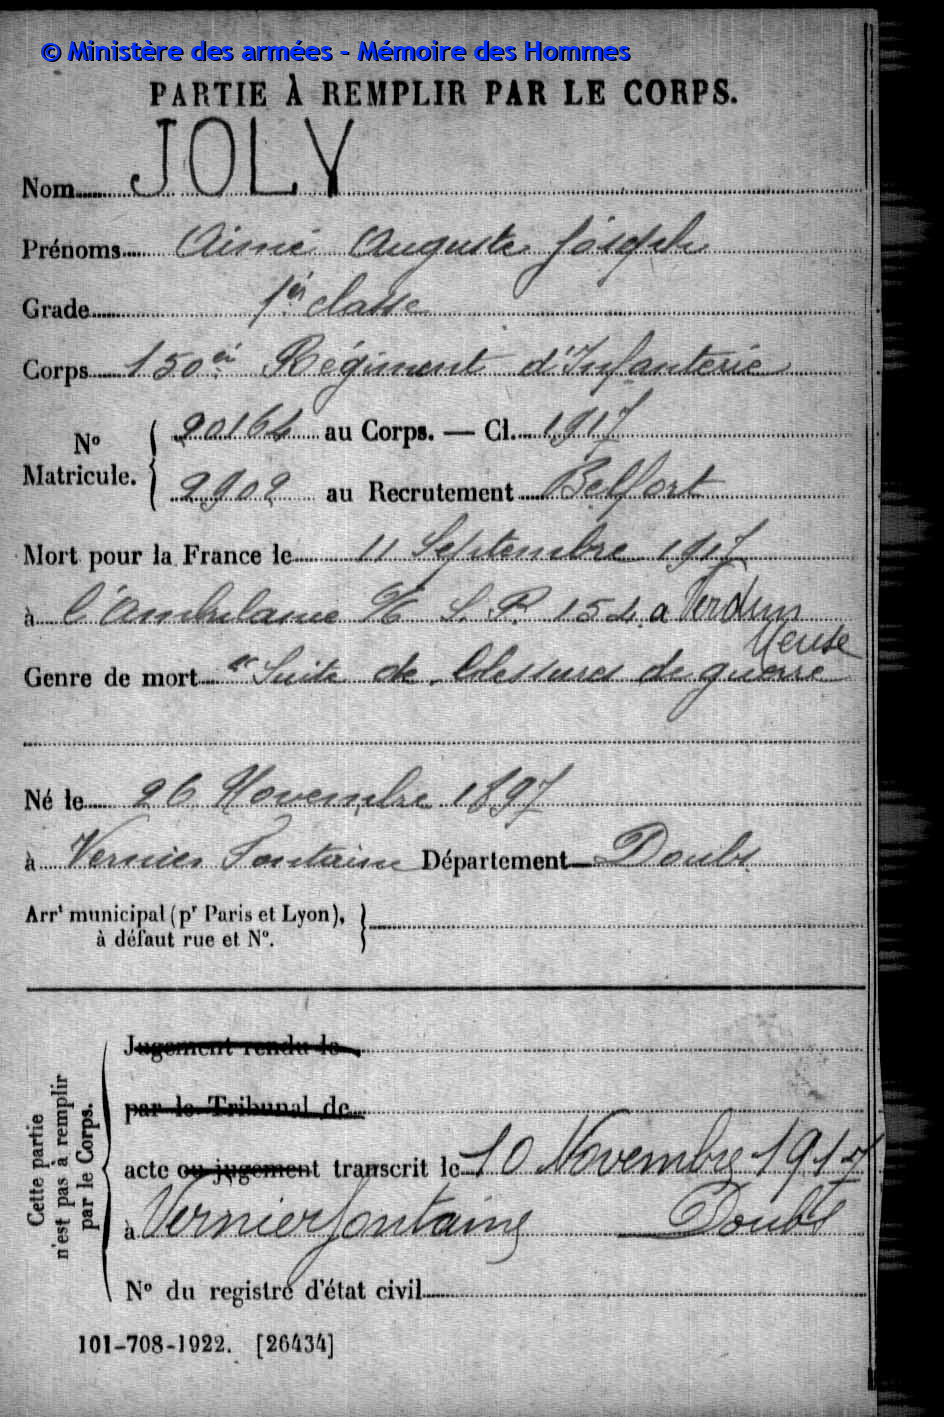 © Ministère des armées - Mémoire des Hommes
PARTIE À REMPLIR PAR LE CORPS.
Nom JOLY
Prénoms Aimé Auguste Joseph
Grade 1er classe
Corps 150e Régiment d'Infanterie
N° Matricule. { 20164 au Corps. — Cl. 1917
2902 au Recrutement Belfort
Mort pour la France le 11 Septembre 1917
à l'Ambulance S. P. 154 a Verdun
Meuse
Genre de mort Suite de blessures de guerre
Né le 26 Novembre 1897
à Vernier Fontaine Département Doubs
Arrt municipal (pr Paris et Lyon),
à défaut rue et N°.
Cette partie
n'est pas à remplir
par le Corps.
Jugement rendu le
par le Tribunal de
acte ou jugement transcrit le 10 Novembre 1917
à Vernierfontaine Doubs
N° du registre d'état civil
101-708-1922. [26434]